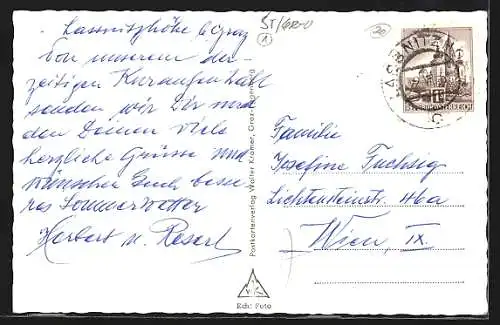 Lassnitzhöhe b. Graz
Von unserem der-
zeitigen Kuraufenthalt
senden wir Dir und
den Deinen viele
herzliche Grüsse und
wünschen Euch besse-
res Sommerwetter
Herbert u. Reserl
ST/GR-U
1
20
LASSNITZHÖ
REPUBLIK ÖSTERREICH
Postkartenverlag Walter Kramer, Graz
Echt Foto
Familie
Josefine Fuchsig
Lichtensteinstr. 46a
Wien, IX.